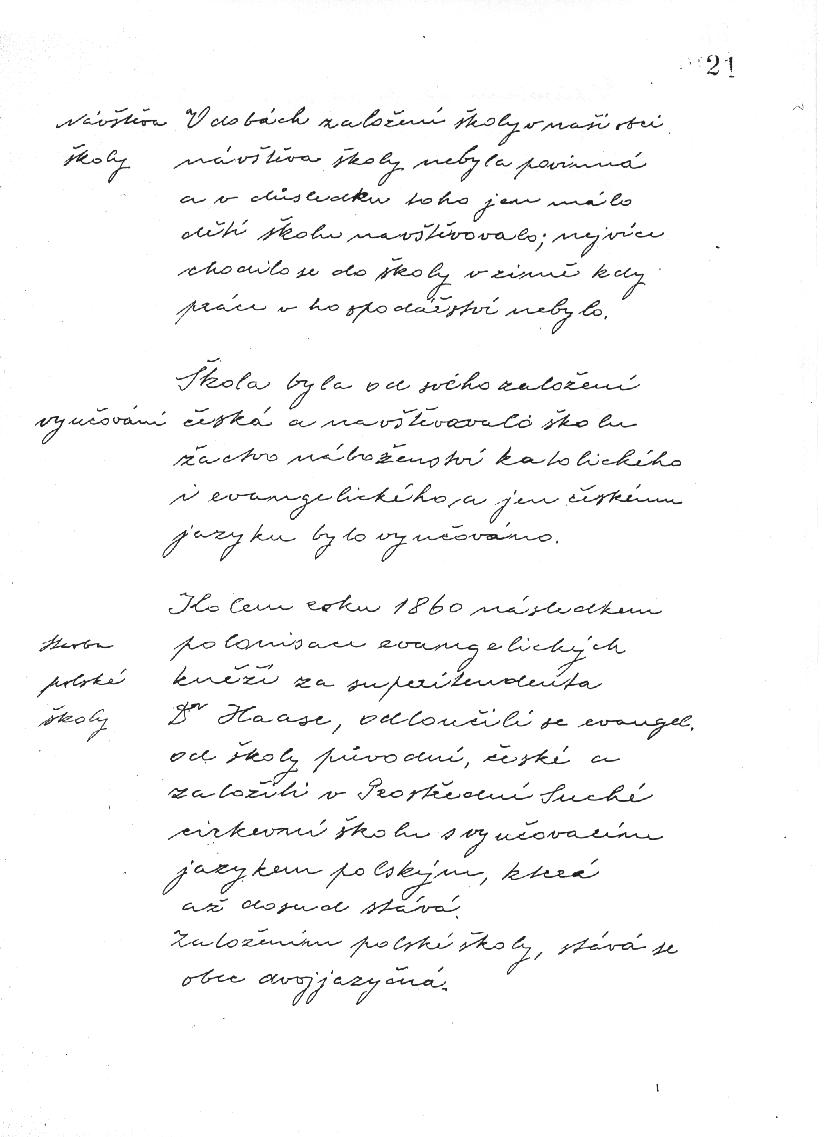 21
Návštěva V dobách založení školy v naší obci
školy návštěva školy nebyla povinná
a v důsledku toho jen málo
dětí školu navštěvovalo; nejvíce
chodilo se do školy v zimě kdy
práce v hospodářství nebylo.
Škola byla od svého založení
vyučování česká a navštěvovalo školu
žactvo náboženství katolického
i evangelického, a jen českému
jazyku bylo vyučováno.
Kolem roku 1860 následkem
Stavba polonisaci evangelických
polské kněží za superitendenta
školy Dr Haase, odloučili se evangel.
od školy původní, české a
založili v Prostřední Suché
církevní školu s vyučovacím
jazykem polským, která
až dosud stává.
Založením polské školy, stává se
obec dvojjazyčná.